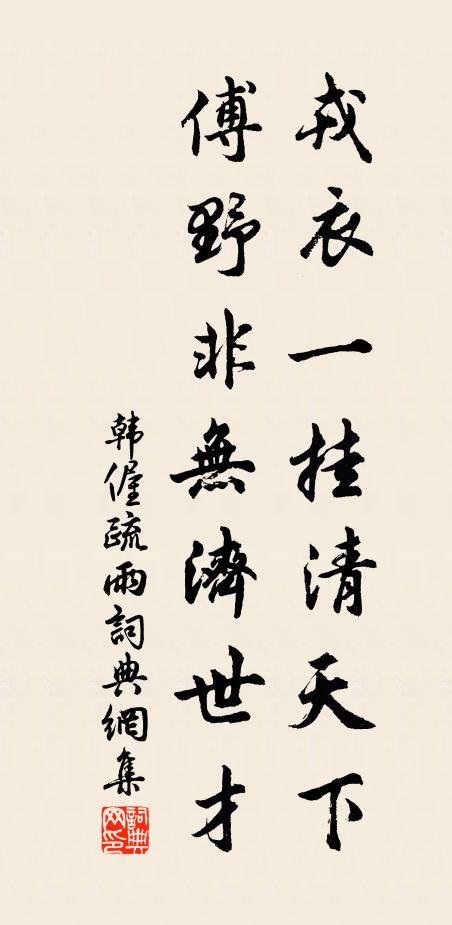 戎衣一挂清天下
傅野非無濟世才
韓偓疏雨詞典網集
詞典網印